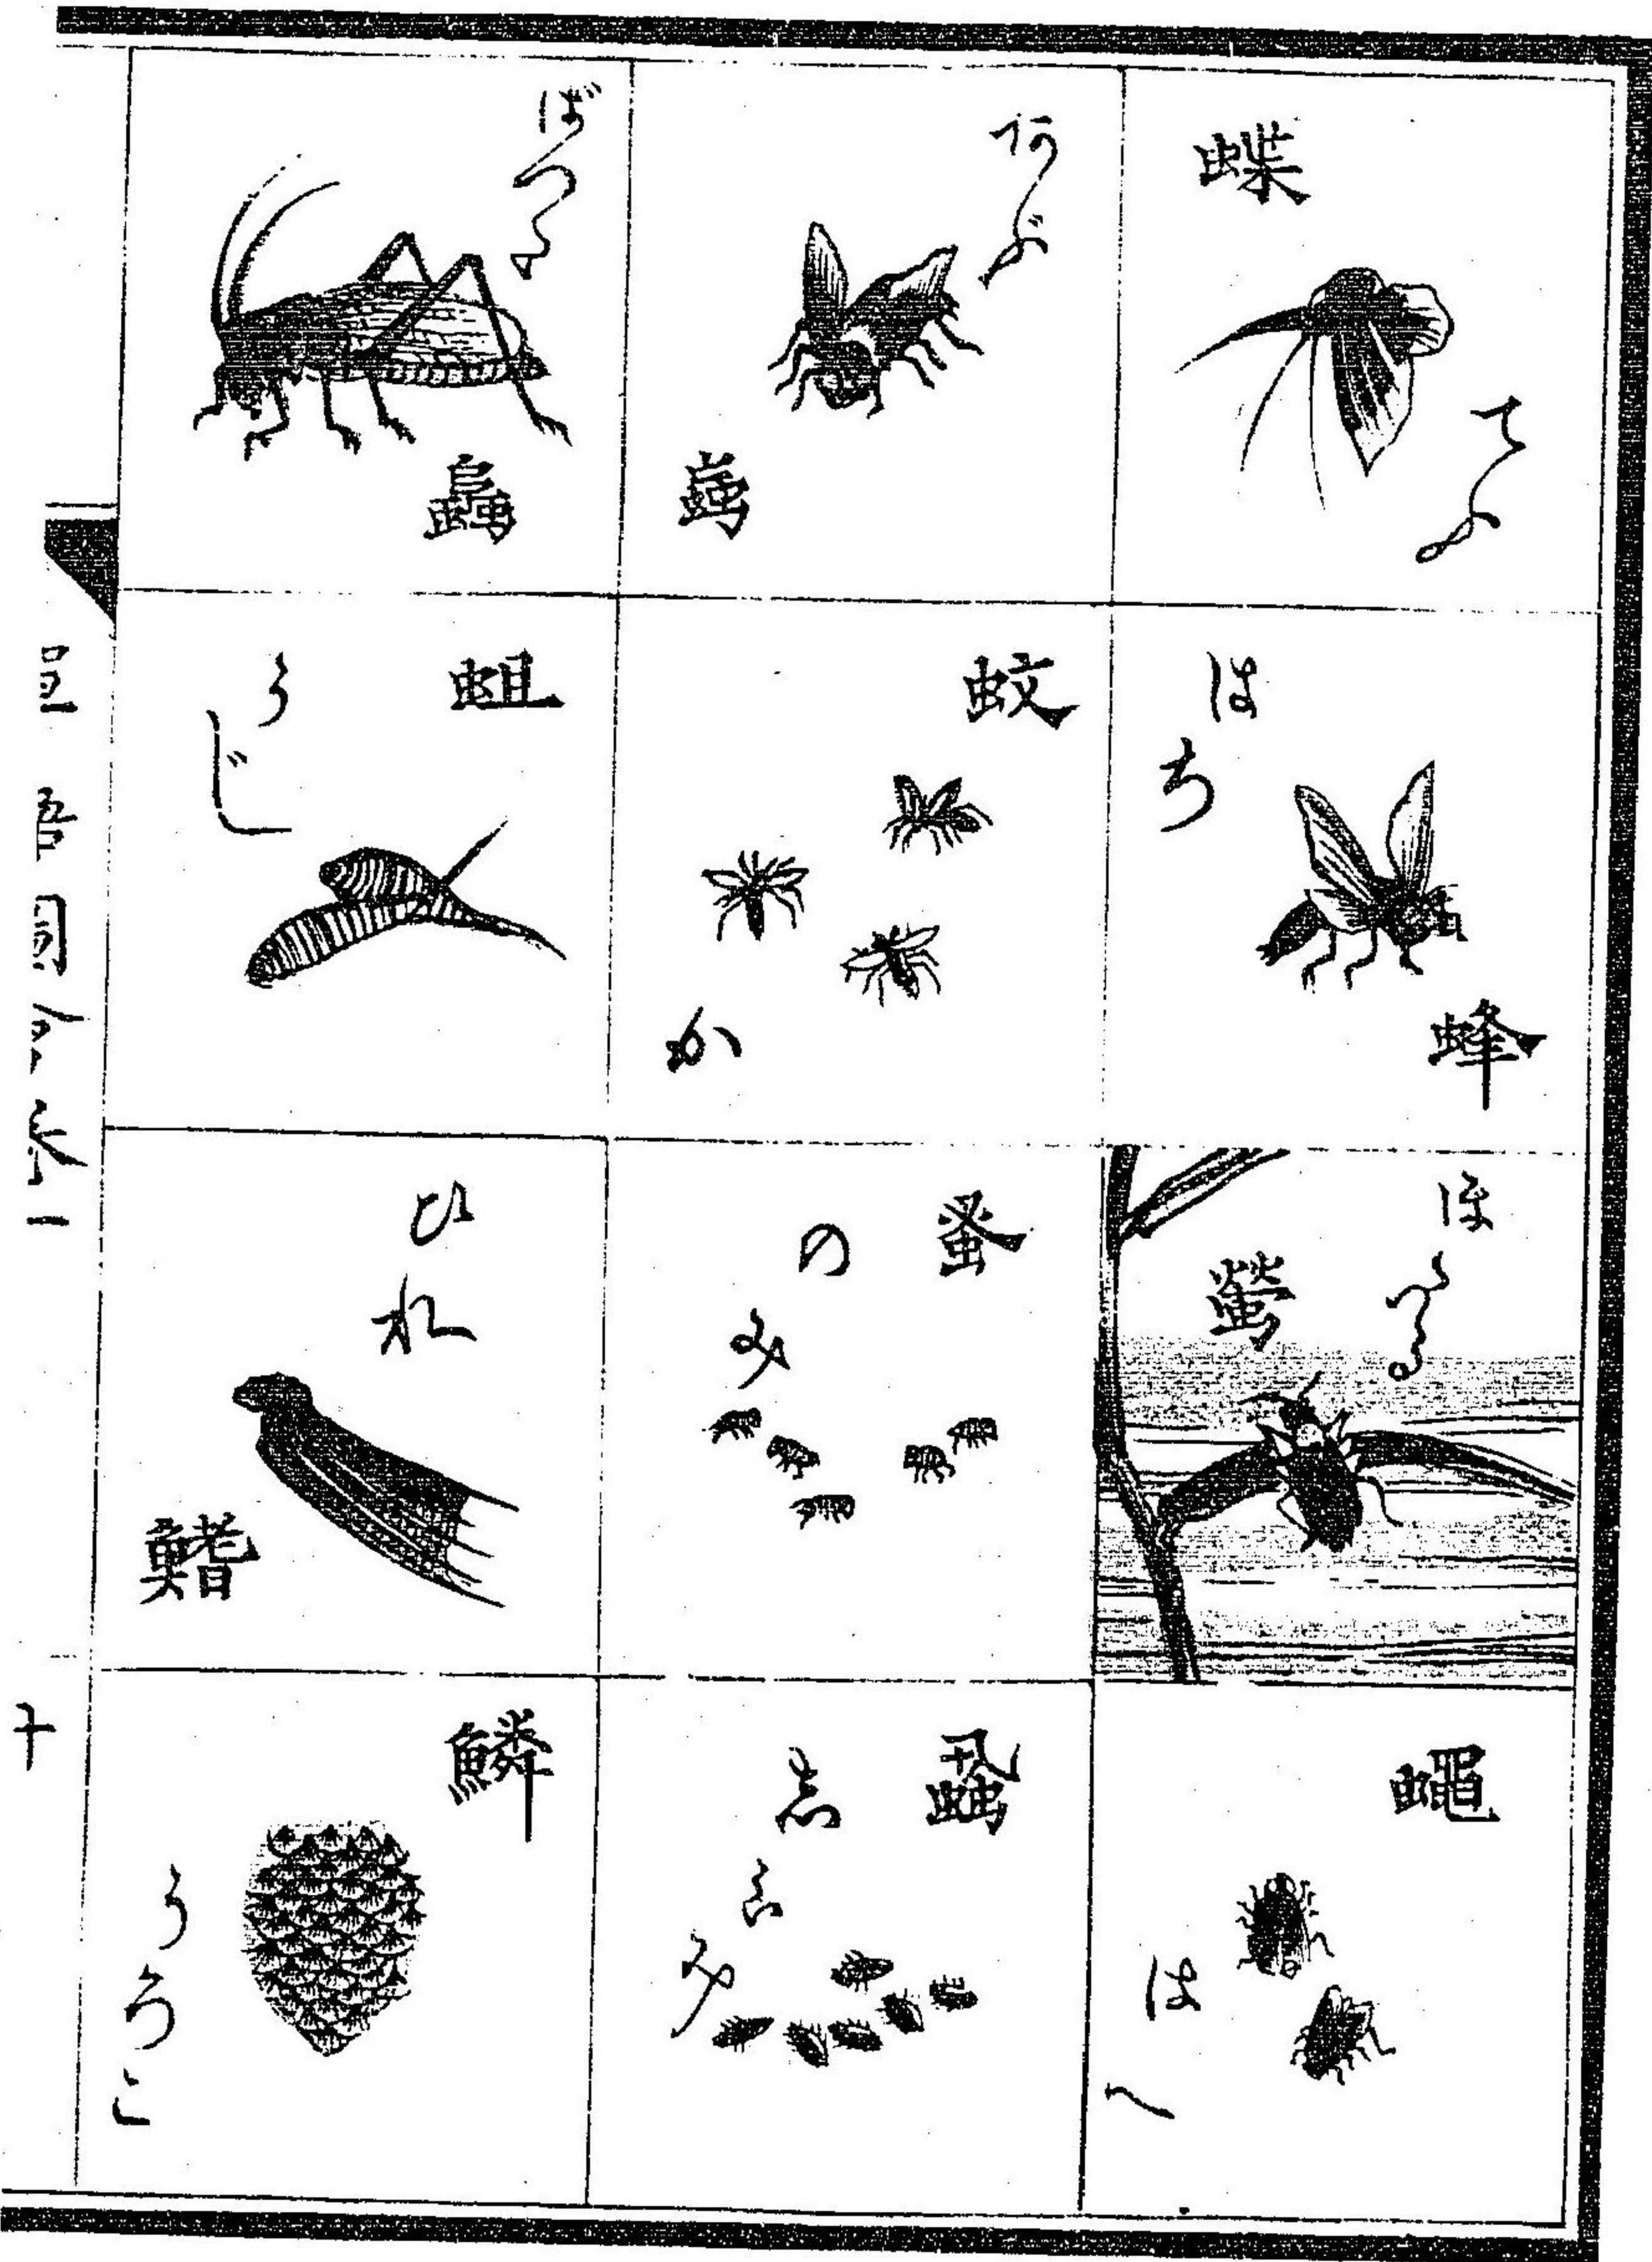 蝶
てふ
はち
蜂
ほたる
螢
蠅
はへ
あぶ
蚊
か
蚤
のみ
蝨
しらみ
ばつた
蛆
うじ
ひれ
鰭
鱗
うろこ
十